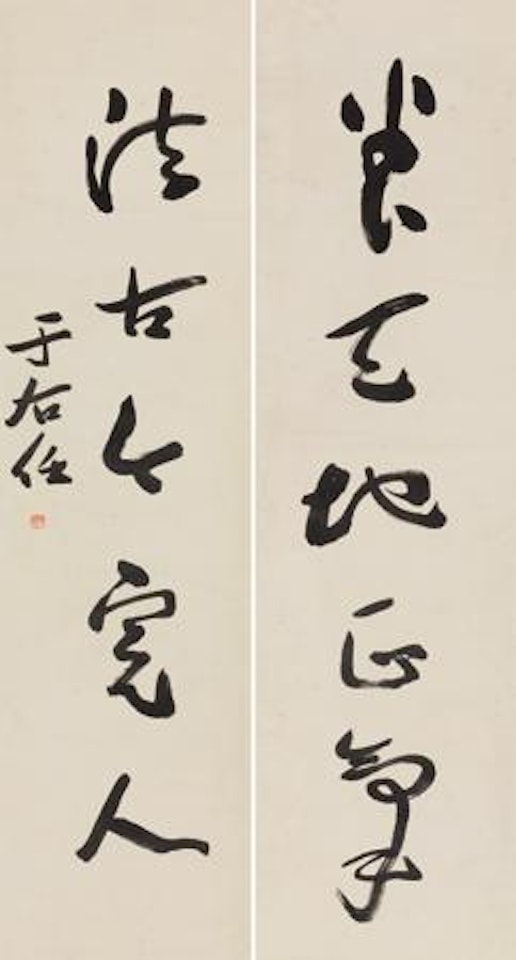 养天地正氣
法古今完人
于右任